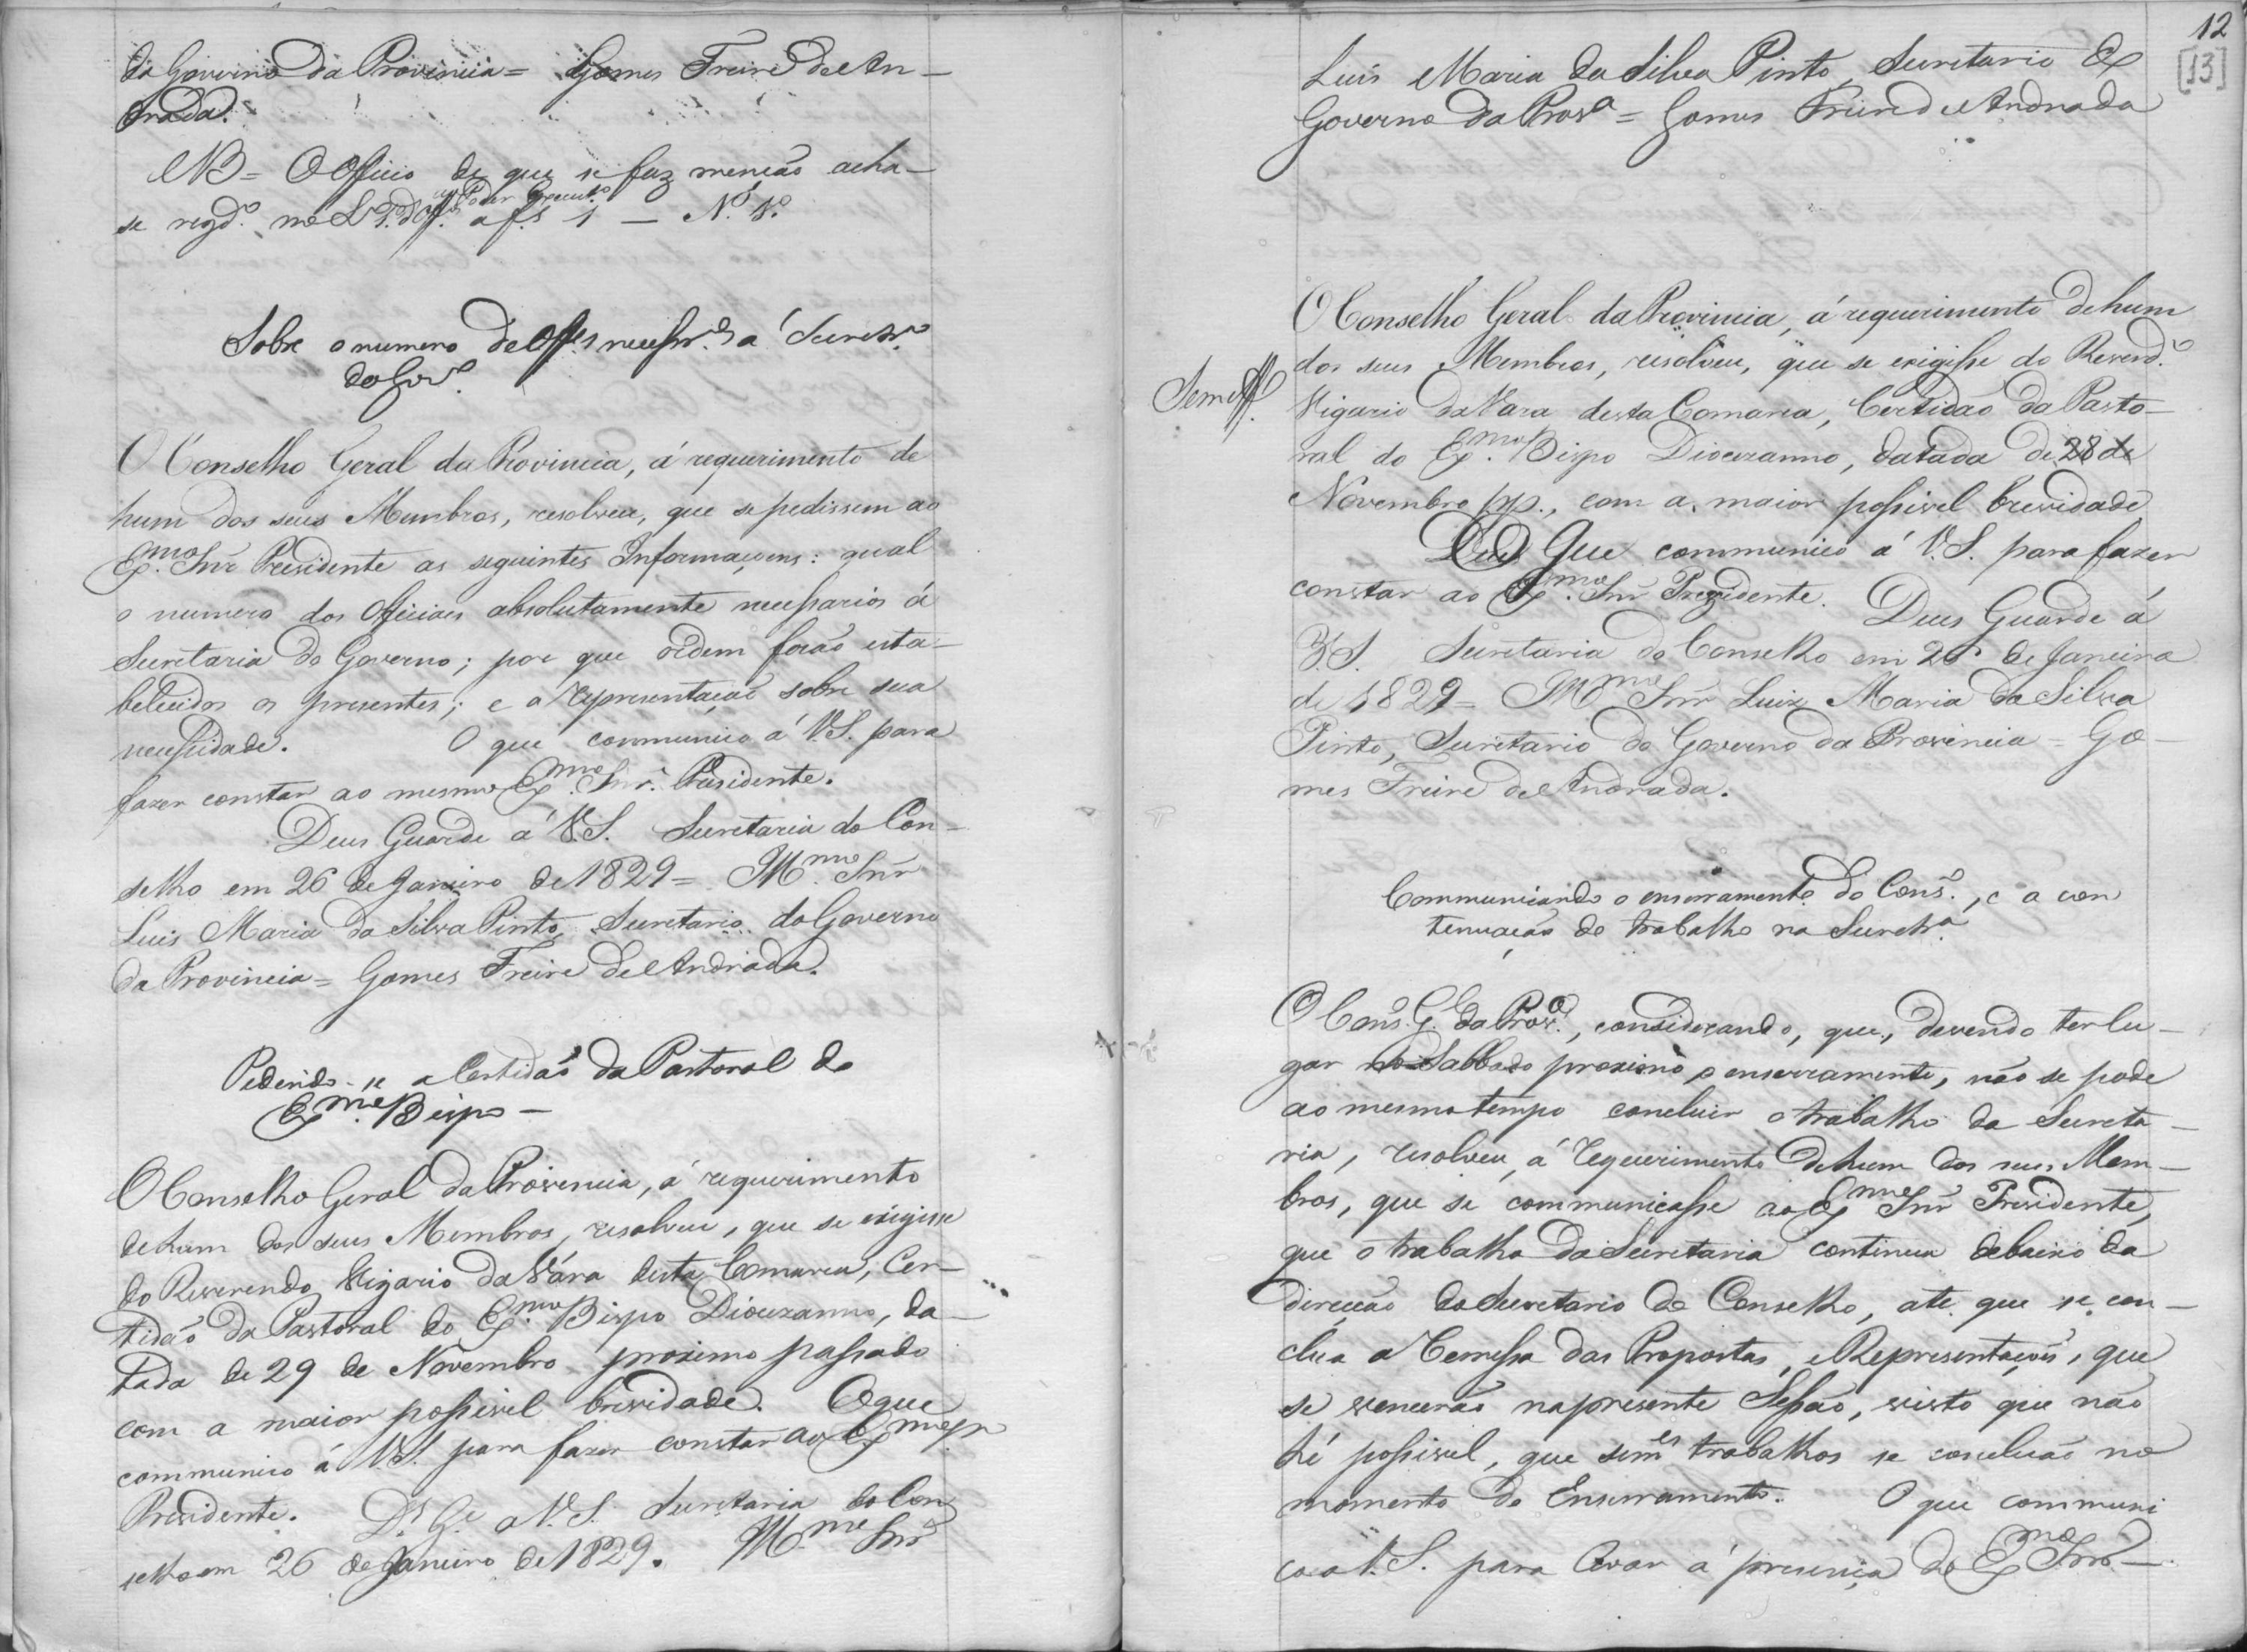 do Governo da Provincia = Gomes Freire de An-
drada.
NB = O Officio de que se faz menção acha-
se regd.º no L.º 1.º d'Off.os ao Poder Execut.º a f.s 1 — N.º 1.º
Sobre o numero de Off.es necessr.os a' Secretr.ª
do Gov.º
O Conselho Geral da Provincia, á requerimento de
hum dos seus Membros, resolveu, que se pedissem ao
Ex.mo Snr Presidente as seguintes Informaçoens: qual
o numero dos Officiaes absolutamente necessarios á
Secretaria do Governo; por que ordem forão esta-
belecidos os presentes; e a representação sobre sua
necessidade. O que communico á V.S. para
fazer constar ao mesmo Ex.mo Snr. Presidente.
Deus Guarde á V.S. Secretaria do Con-
selho em 26 de Janeiro de 1829 = Ill.mo Snr
Luis Maria da Silva Pinto, Secretario do Governo
da Provincia = Gomes Freire de Andrada.
Pedindo-se a Certidão da Pastoral do
Ex.mo Bispo —
O Conselho Geral da Provincia, á requerimento
de hum dos seus Membros, resolveu, que se exigisse
do Reverendo Vigario da Vára desta Comarca, Cer-
tidão da Pastoral do Ex.mo Bispo Diocezanno, da-
tada de 29 de Novembro proximo passado
com a maior possivel brevidade. O que
communico á V.S. para fazer constar ao Ex.mo Sr
Presidente. D.s G.e a V.S. Secretaria do Con
selho em 26 de Janeiro de 1829. Ill.mo Snr
12
[13]
Luis Maria da Silva Pinto, Secretario do
Governo da Prov.ª = Gomes Freire de Andrada
O Conselho Geral da Provincia, á requerimento de hum
dos seus Membros, resolveu, que se exigisse do Reverd.º
Sem eff.º
Vigario da Vara desta Comarca, Certidão da Pasto-
ral do Ex.mo Bispo Diocezanno, datada de 28 de
Novembro pp., com a maior possivel brevidade
O que communico á V.S. para fazer
constar ao Ex.mo Snr Prezidente. Deus Guarde á
V.S. Secretaria do Conselho em 26 de Janeiro
de 1829 = Ill.mo Snr Luiz Maria da Silva
Pinto, Secretario do Governo da Provincia = Go-
mes Freire de Andrada.
Communicando o enserramento do Cons.º, e a con
tenuação do trabalho na Secretr.ª
O Cons.º G. da Prov.ª, considerando, que, devendo ter lu-
gar no Sabbado proximo o enserramento, não se pode
ao mesmo tempo concluir o trabalho da Secreta-
ria, resolveu, á requerimento de hum dos seus Mem-
bros, que se communicasse ao Ex.mo Snr Presidente,
que o trabalho da Secretaria continua debaixo da
direcção do Secretario do Conselho, até que se con-
clúa a remessa das Propostas, e Representaçoẽs, que
se vencerão na presente Sessão, visto que não
hé possivel, que sem.es trabalhos se concluão no
momento do Enserramento. O que communi
co a V.S. para levar á presença do Ex.mo Snr —